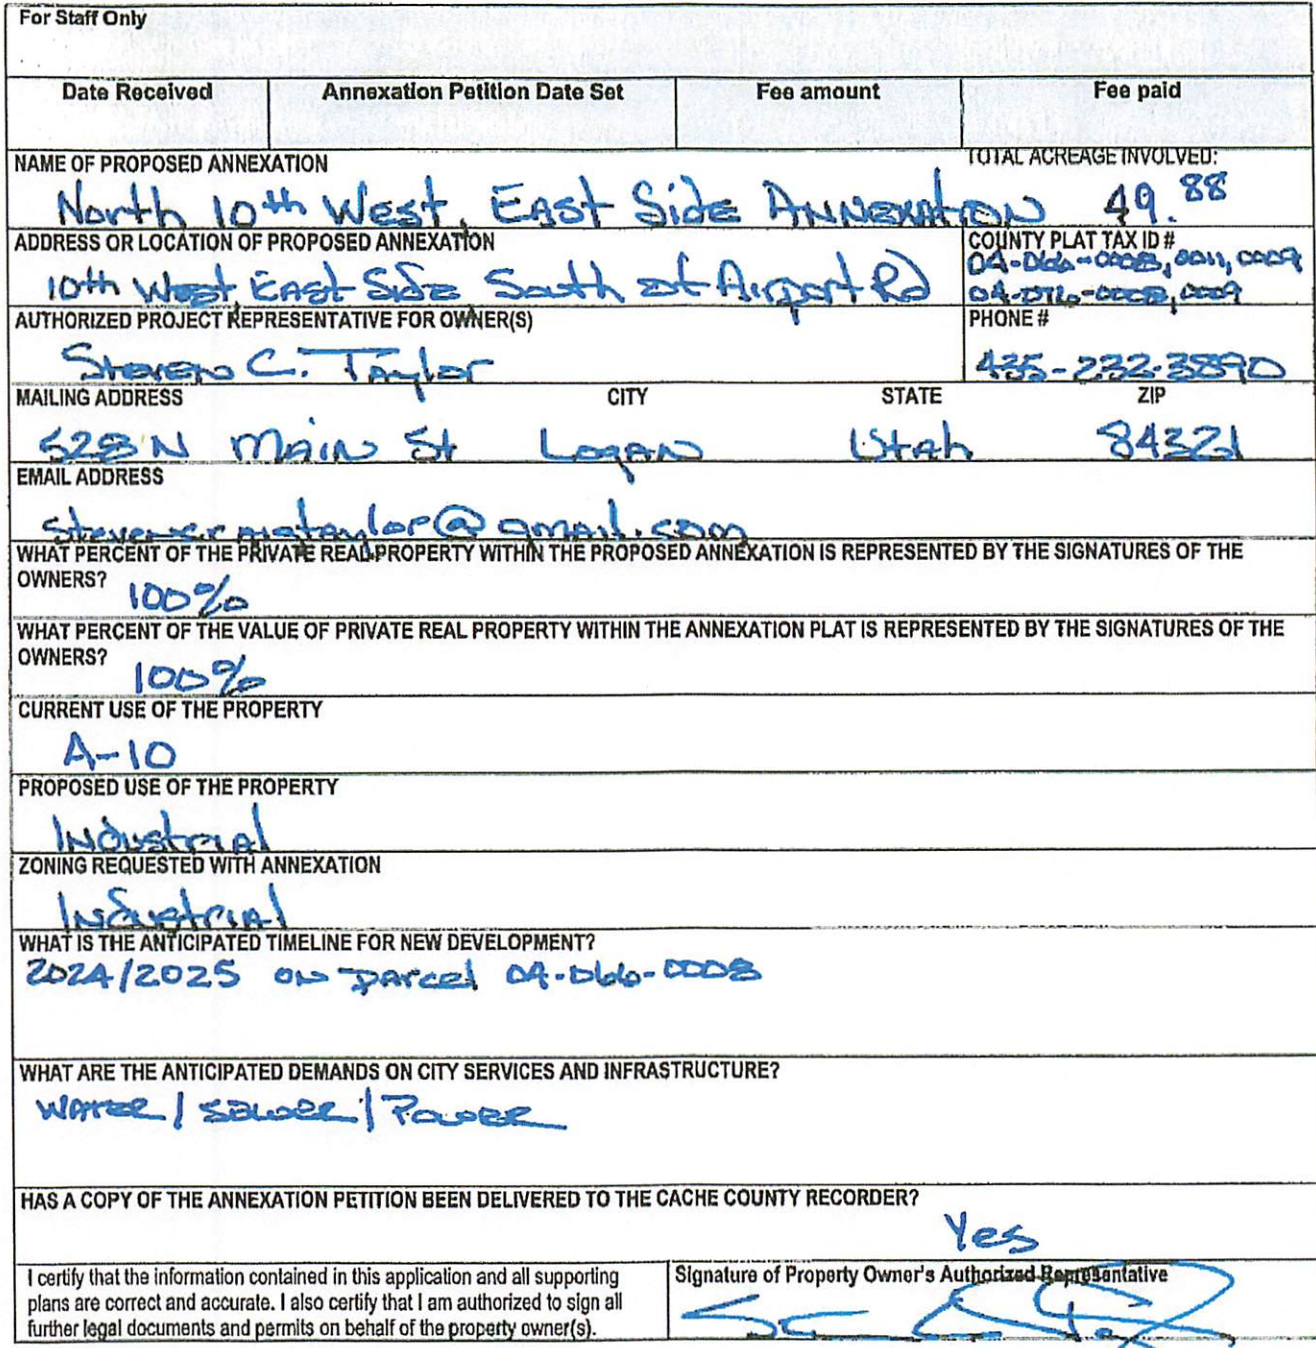 For Staff Only
Date Received Annexation Petition Date Set Fee amount Fee paid
NAME OF PROPOSED ANNEXATION TOTAL ACREAGE INVOLVED:
North 10th West, East Side Annexation 49.88
ADDRESS OR LOCATION OF PROPOSED ANNEXATION COUNTY PLAT TAX ID #
04-066-0008, 0011, 0009
10th West, East Side South of Airport Rd
04-076-0008, 0009
AUTHORIZED PROJECT REPRESENTATIVE FOR OWNER(S) PHONE #
Steven C. Taylor 435-232-3890
MAILING ADDRESS CITY STATE ZIP
528 N Main St Logan Utah 84321
EMAIL ADDRESS
@gmail.com
WHAT PERCENT OF THE PRIVATE REAL PROPERTY WITHIN THE PROPOSED ANNEXATION IS REPRESENTED BY THE SIGNATURES OF THE
OWNERS? 100%
WHAT PERCENT OF THE VALUE OF PRIVATE REAL PROPERTY WITHIN THE ANNEXATION PLAT IS REPRESENTED BY THE SIGNATURES OF THE
OWNERS? 100%
CURRENT USE OF THE PROPERTY
A-10
PROPOSED USE OF THE PROPERTY
Industrial
ZONING REQUESTED WITH ANNEXATION
Industrial
WHAT IS THE ANTICIPATED TIMELINE FOR NEW DEVELOPMENT?
2024/2025 on parcel 04-066-0008
WHAT ARE THE ANTICIPATED DEMANDS ON CITY SERVICES AND INFRASTRUCTURE?
Water / Sewer / Power
HAS A COPY OF THE ANNEXATION PETITION BEEN DELIVERED TO THE CACHE COUNTY RECORDER?
Yes
I certify that the information contained in this application and all supporting
plans are correct and accurate. I also certify that I am authorized to sign all
further legal documents and permits on behalf of the property owner(s).
Signature of Property Owner's Authorized Representative